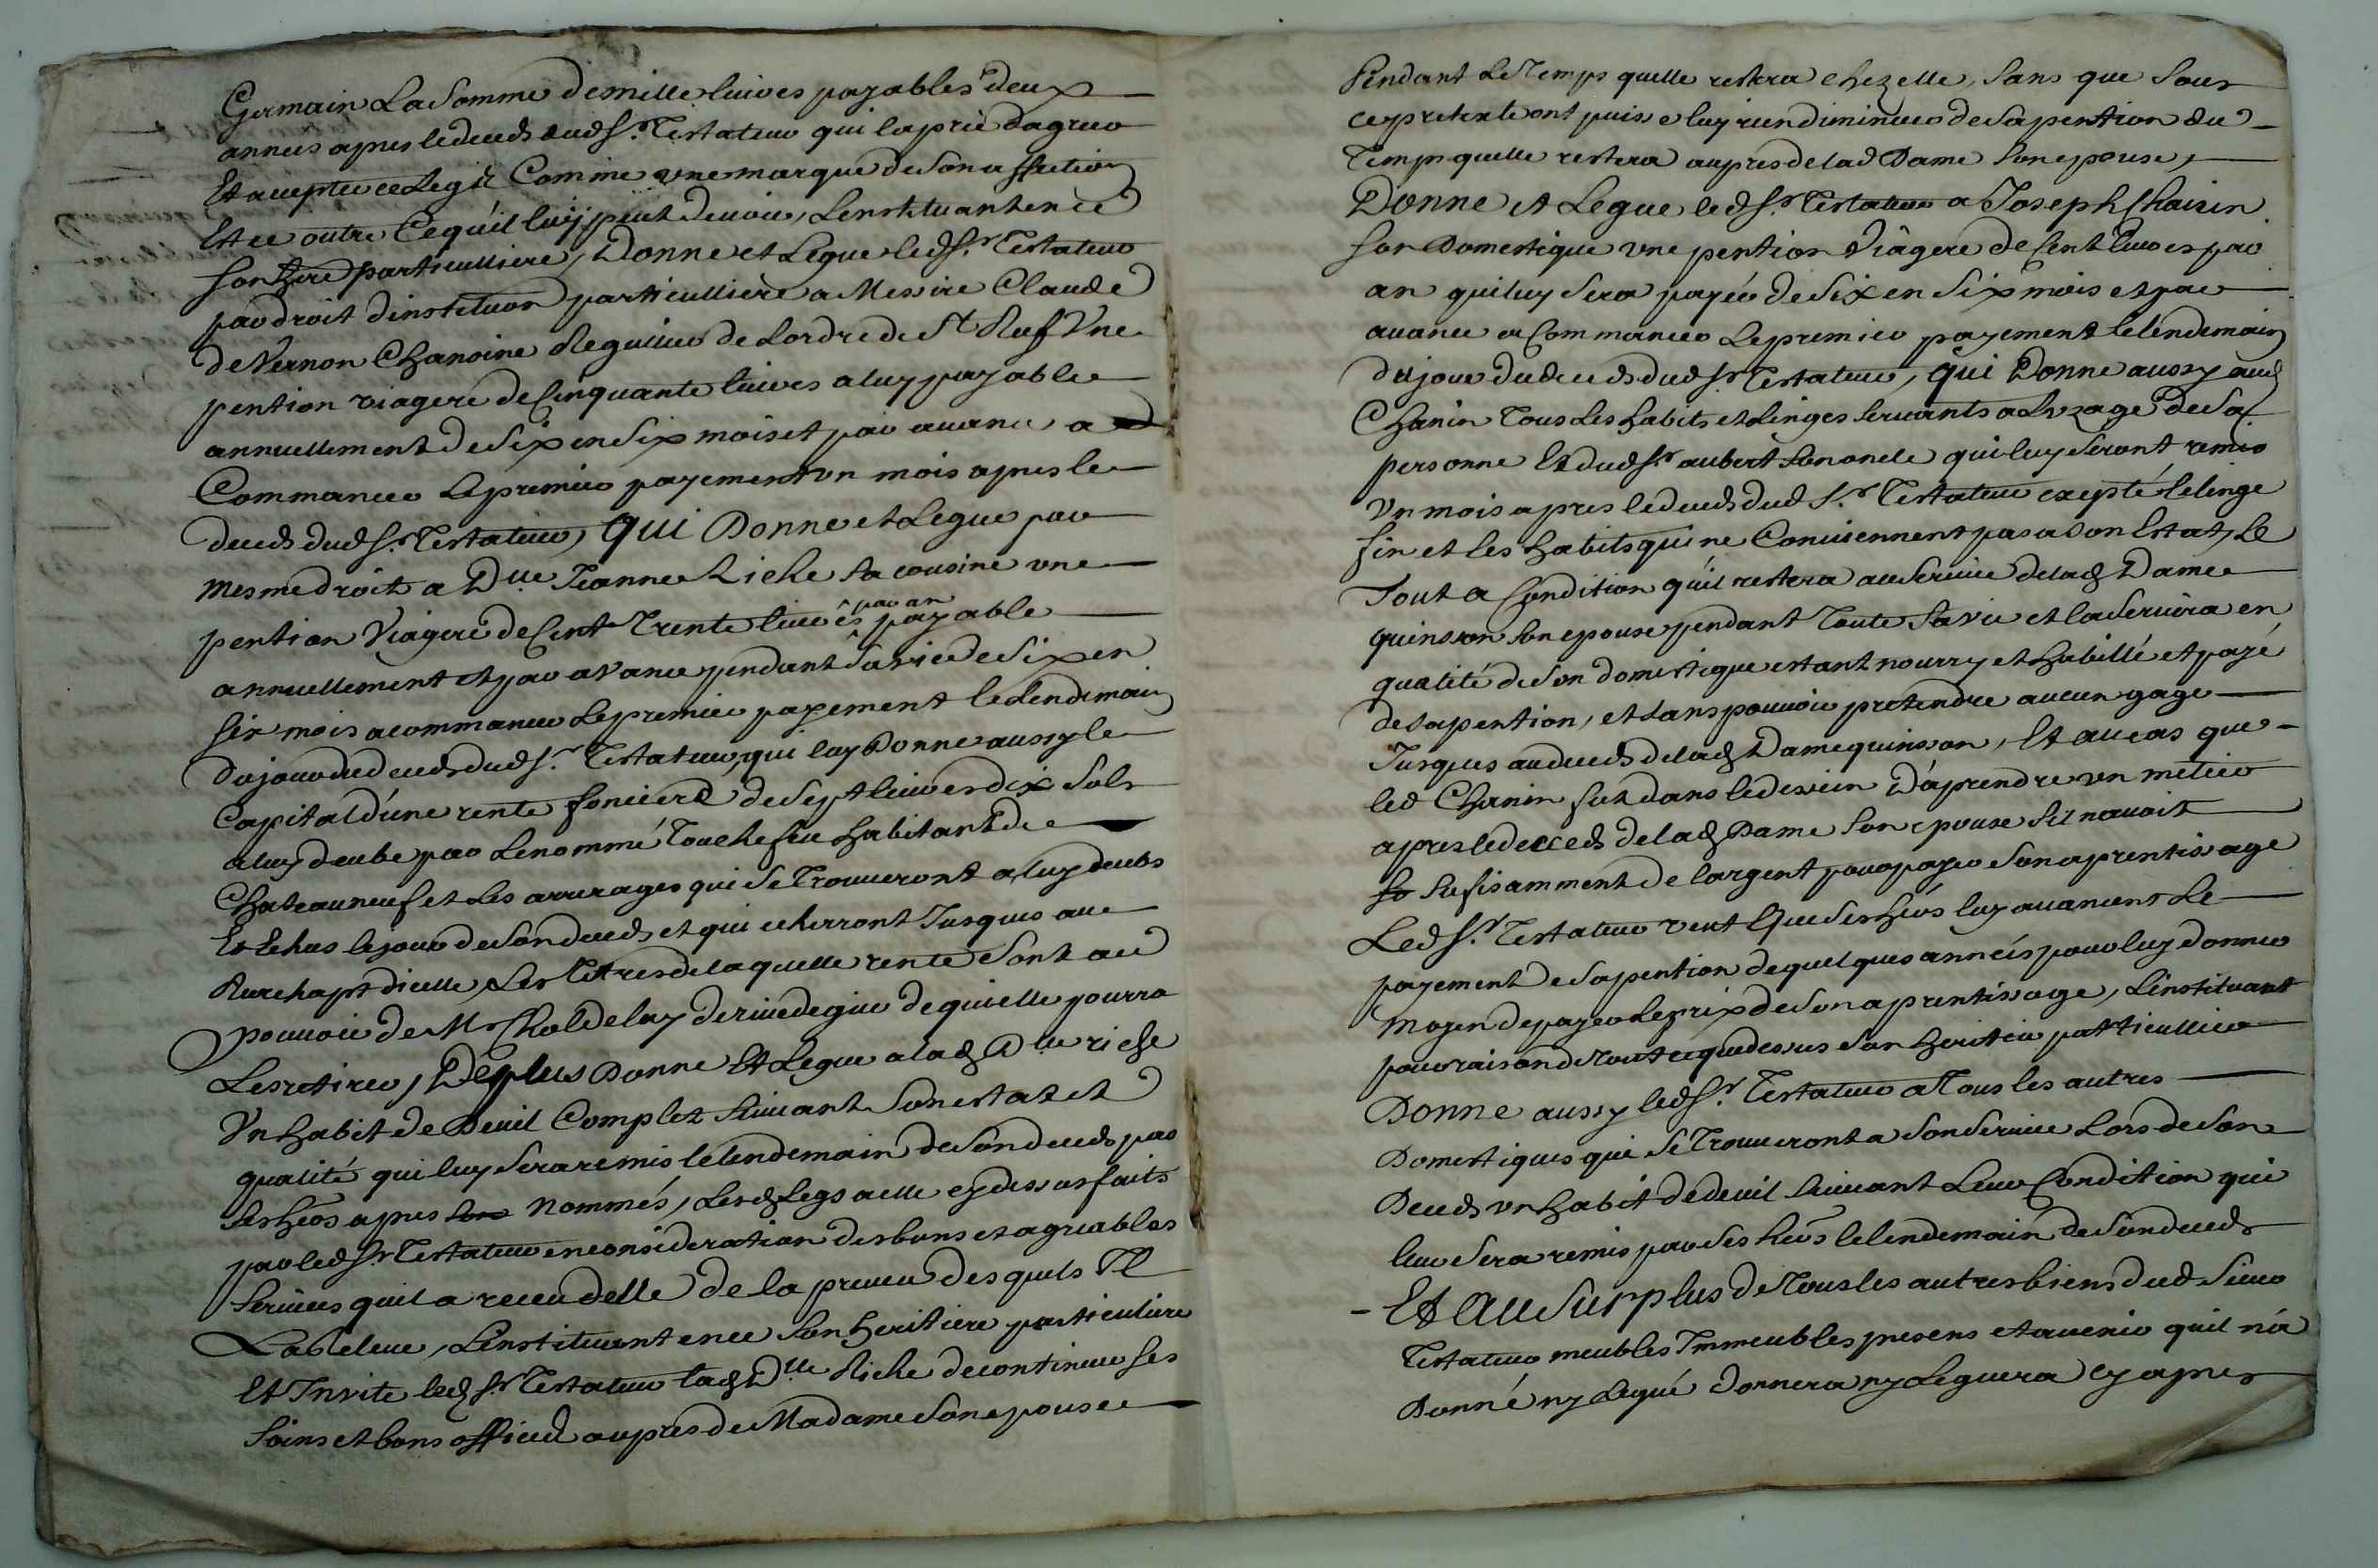 Germain La Somme de mille livres payables deux
années apres le deceds dud Sr. Testateur qui la prie dagreer
Et accepter ce Legst Comme une marque de son affection
Et ce outre Ce qu'il luy peut devoir, Linstituant en ce
son here particulliere, Donne et Legue led Sr. Testateur
par droit dinstituon particulliere a Messire Claude
de Vernon Chanoine Regulier de Lordre de St Ruf Une
pention viagere de Cinquante livres a luy payable
annuellement de Six en Six mois et par avance a
Commancer Le premier payement un mois apres le
deceds dud Sr. Testateur, Qui Donne et Legue par
mesme droit a Dlle Jeanne Riche sa cousine une
pention Viagere de Cent Trente livres par an payable
annuellement et par avance pendant sa vie de Six en
Six mois a commancer Le premier payement le Lendemain
du jour du deceds dud Sr. Testateur, qui luy donne aussy le
Capital d'une rente fonciere de Sept livres dix Sols
a luy deube par Le nommé Touchefeu habitant de
Chateauneuf et Les arrerages qui se Trouveront a luy deubs
Et Echus le jour de son deceds et qui echerront Jusques au
Rurchapt dicelle, Les Titres de laquelle rente sont au
pouvoir de Mr Choldelay de rivedegier de qui elle pourra
Les retirer, De plus Donne Et Legue a lad Dlle riche
Un habit de Deuil Complet suivant Son estat et
qualité qui luy sera remis le lendemain de son deceds par
ses heos apres nommés, Lesd Legs a elle cy dessus faits
par led Sr. Testateur en consideration des bons et agreables
services quil a receu delle de la preuve des quels Il
La Releve, Linstituant en ce son heritiere particuliere
Et Invite led Sr Testateur lad Dlle Riche de continuer ses
soins et bons offices aupres de Madame Son epouse
Pendant Le Temps quelle restera chez elle, Sans que Sous
ce pretexte ont puisse luy rien diminuer de Sa pention du
Temps quelle restera aupres de lad Dame Son epouse,
Donne et Legue led Sr. Testateur a Joseph Chanin
son Domestique une pention Viagere de Cent livres par
an qui luy Sera payée de Six en Six mois et par
avance a Commancer Le premier payement le lendemain
du jour du deceds dud Sr Testateur, Qui Donne aussy aud
Chanin Tous Les habits et Linges servants a Luzage De Sa
personne Et dud Sr. aubert Son oncle qui luy seront remis
un mois apres le deceds dud Sr. Testateur excepté le linge
fin et les habits qui ne Conviennent pas a Son Estat, Le
Tout a Condition qu'il restera au service de lad Dame
quinsson Son epouse pendant Toute Sa vie et la Servira en
qualité de Son domestique estant nourry et habillé et payé
de sa pention, et sans pouvoir pretendre aucun gage
Jusques au deceds de lad Dame quinsson, Et au cas que
led Chanin fut dans le dessein D'aprendre un metier
apres le deceds de lad Dame Son epouse Sil navoit
so sufisamment de largent pour payer Son aprentissage
Led Sr. Testateur veut Que Ses heos luy avancent Le
payement de Sa pention de quelques années pour luy donner
moyen de payer Le prix de Son aprentissage, Linstituant
pour raison de Tout ce que dessus Son heritier particullier
Donne aussy led Sr. Testateur a Tous les autres
Domestiques qui Se Trouveront a Son Service Lors de Son
Deceds un habit de deuil suivant Leur Condition qui
leur Sera remis par Ses heos le lendemain de Son deceds
Et Au Surplus de Tous les autres biens dud Sieur
Testateur meubles Immeubles presens et avenir quil n'a
Donné ny Legué Donnera ny Leguera cy apres